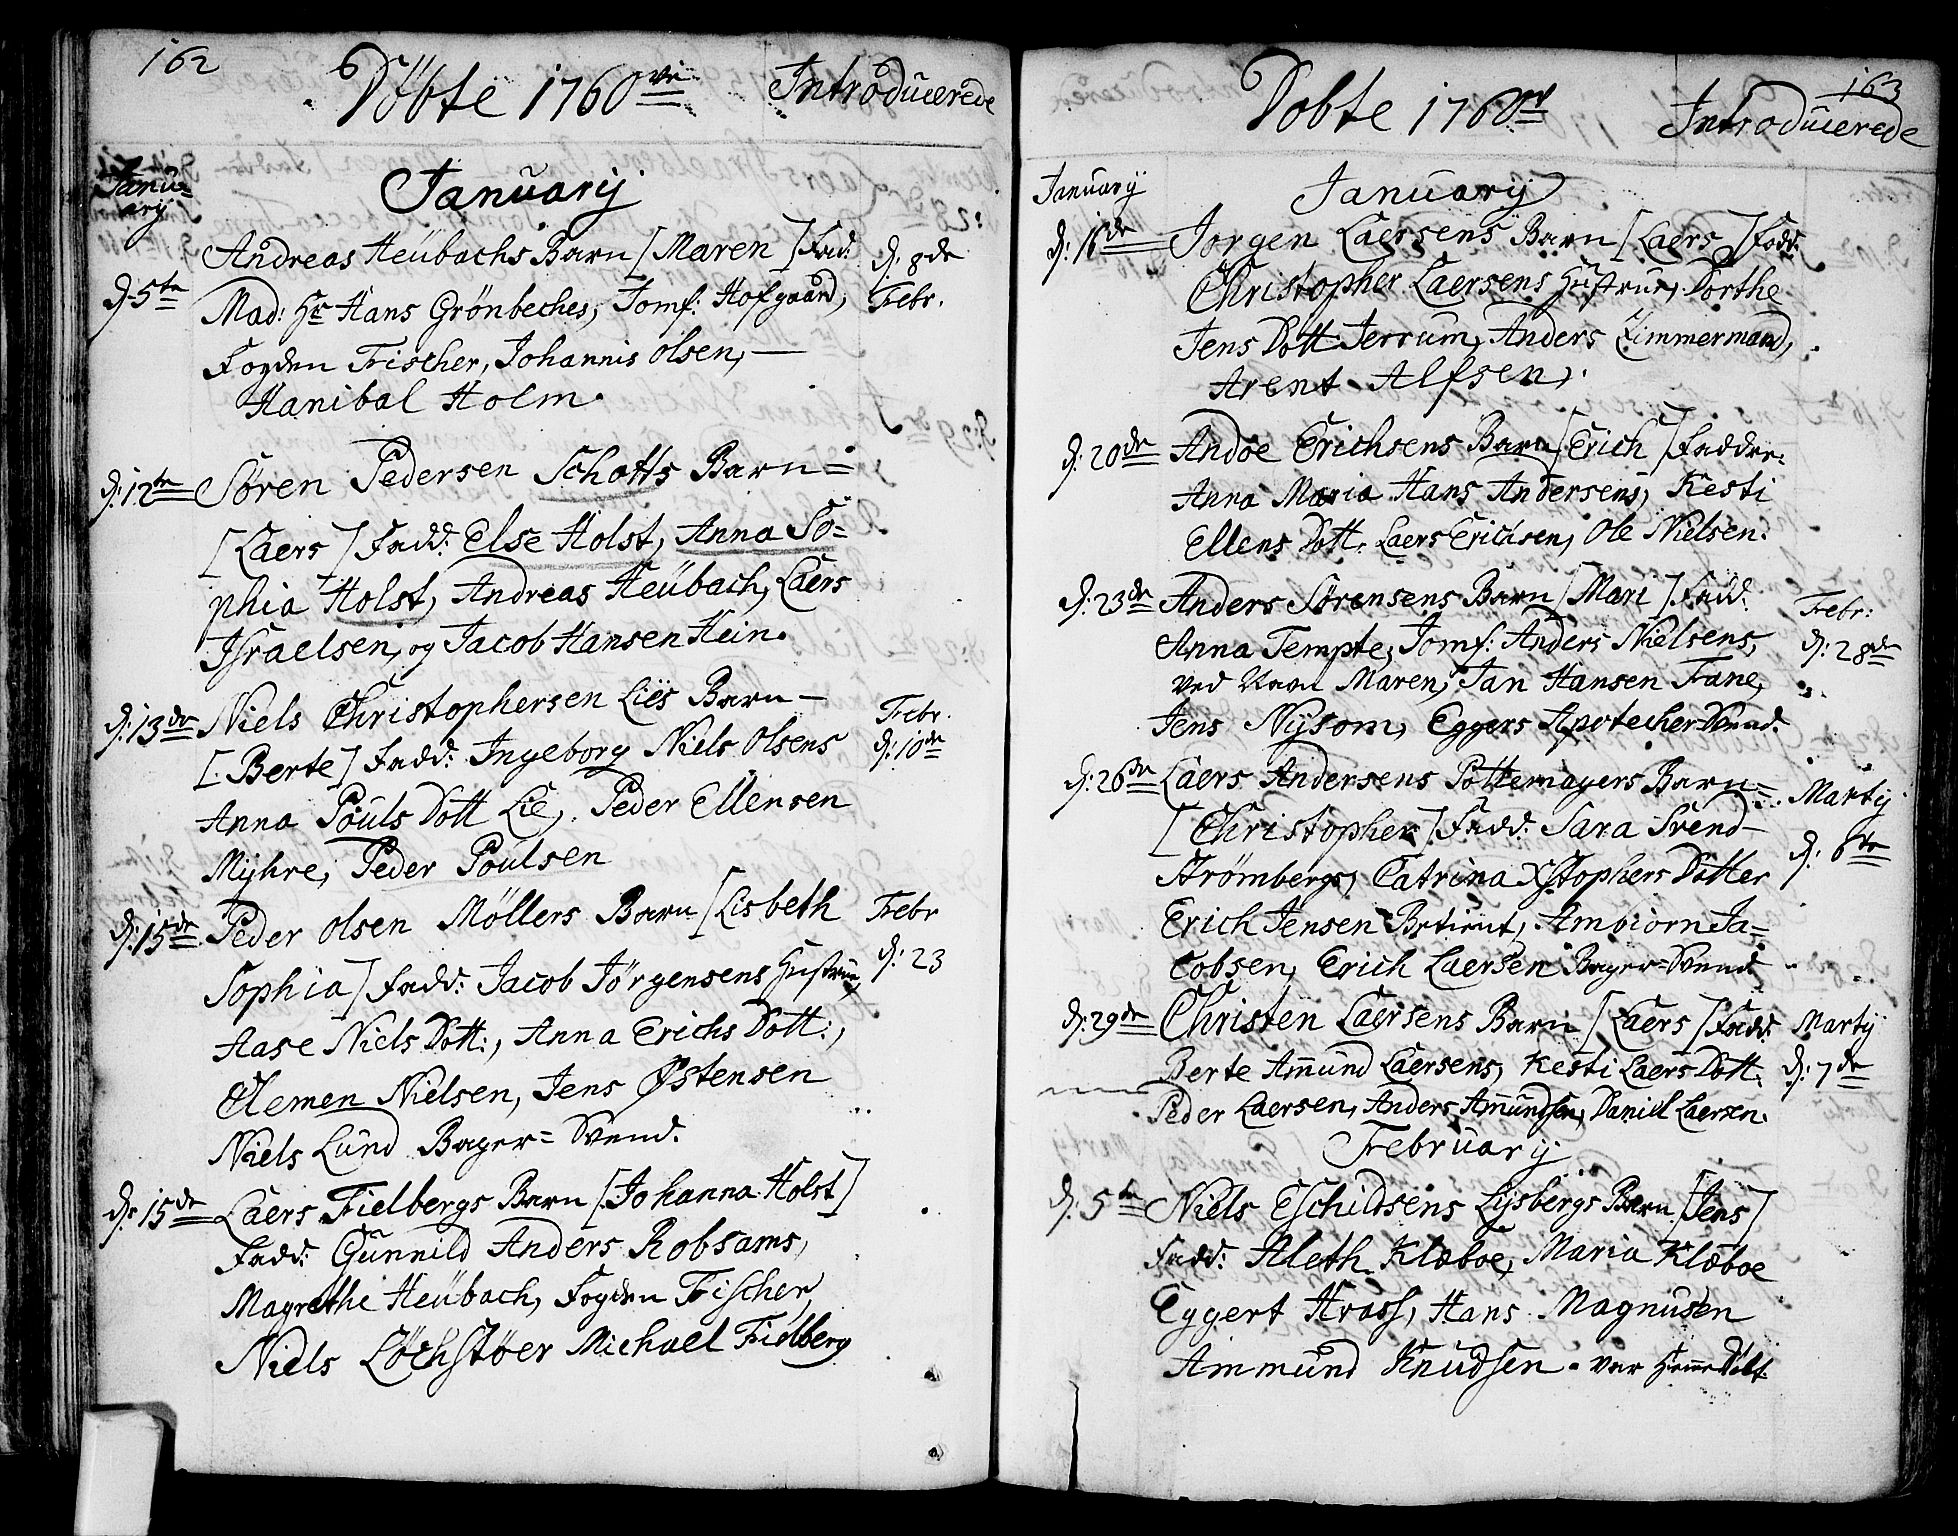 162
Döbte 1760
Introducerede
Janu-
arij
Januarij
Andreas Heübachs Barn [Maren] Fad:
d: 8de
d: 5te
Mad: Hr Hans Grönbeches, Jomf: Hofgaard,
Febr.
Fogden Fischer, Johannis Olsen, —
Hanibal Holm.
d: 12te Søren Pedersen Schotts Barn =
[Laers] Fadd: Else Holst, Anna So=
phia Holst, Andreas Heübach, Laers
Israelsen, og Jacob Hansen Hein.
d: 13de Niels Christophersen Lies Barn —
Febr.
[Berte] Fadd: Ingeborg Niels Olsens
d: 10de
Anna Pouls Dott Lie, Peder Ellensen
Myhre, Peder Poulsen
d: 15de Peder Olsen Möllers Barn [Lisbeth
Febr
Sophia] Fadd: Jacob Jörgensens Hustrue,
d: 23
Aase Niels Dott:, Anna Erichs Dott:,
Clemen Nielsen, Jens Østensen
Niels Lund Bager = Svend.
d: 15de Laers Fielbergs Barn [Johanna Holst]
Fadd: Gunnild Anders Robsams,
Magrethe Heübach, Fogden Fischer,
Niels Löchstöer Michael Fielberg
163
Dobte 1760
Introducerede
Januarij
Januarij
d: 16de Jorgen Laersens Barn [Laers] Fadd:
Christopher Laersens Hustrue, Dorthe
Jens Dott Jerrum, Anders Zimmermand,
Arent Alfsen,
d: 20de Andoe Erichsens Barn [Erich] Faddre:
Anna Maria Hans Andersens, Kesti
Ellens Dott, Laers Erichsen, Ole Nielsen.
d: 23de Anders Sørensens Barn [Mari] Fadd:
Febr:
Anna Tempte, Jomf: Anders Nielsens,
d: 28de
ved Navn Maren, Jan Hansen Fane,
Jens Nysom, Eggers Apotecher Svend.
d: 26de Laers Andersens Pottemagers Barn =
Martij
[Christopher] Fadd: Sara Svend
d: 6te
Strömbergs, Catrina Xstophers Dotter
Erich Jensen Betient, Ambiorn Ja=
cobsen, Erich Laersen Bager = Svend
d: 29de Christen Laersens Barn [Laers] Fadd:
Martij
Berte Amund Laersens, Kesti Laers Dott.
d: 7de
Peder Laersen, Anders Amundsen, Daniel Laersen.
Februarij
d: 5te Niels Eschildsens Lysbergs Barn [Jens]
Fadd: Aleth Klæboe, Maria Klæboe
Eggert Krass, Hans Magnusen
Ammund Knudsen. var Hieme Döbt